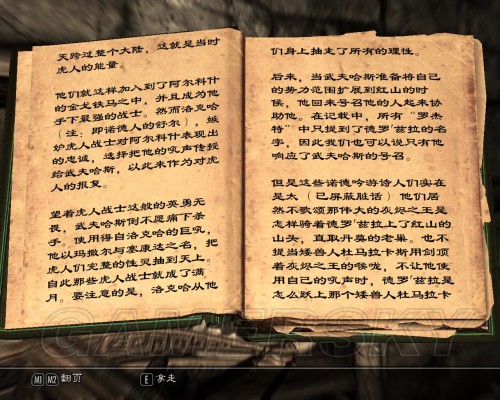 天跨过整个大陆，这就是当时
虎人的能量。
他们就这样加入到了阿尔科什
的金戈铁马之中，并且成为他
手下最强的战士。然而洛克哈
（注：即诺德人的舒尔），嫉
妒虎人战士对阿尔科什表现出
的忠诚，选择把他的吼声传授
给武夫哈斯，以此来作为对虎
人的报复。
望着虎人战士这般的英勇无
畏，武夫哈斯倒不愿痛下杀
手。使用得自洛克哈的巨吼，
他以玛撒尔与塞康达之名，把
虎人们完整的性灵抽到天上。
自此那些虎人战士就成了满
月。要注意的是，洛克哈从他
们身上抽走了所有的理性。
后来，当武夫哈斯准备将自己
的势力范围扩展到红山的时
候，他回来号召他的人起来协
助他。在记载中，所有“罗杰
特”中只提到了德罗'兹拉的名
字，因此我们也可以说只有他
响应了武夫哈斯的号召。
但是这些诺德吟游诗人们实在
是太（已屏蔽脏话）他们居
然不歌颂那伟大的灰烬之王是
怎样骑着德罗'兹拉上了红山的
山头，直取丹莫的老巢。也不
提当矮兽人杜马拉卡斯用剑顶
着灰烬之王的喉咙，不让他使
用自己的吼声时，德罗'兹拉是
怎么跃上那个矮兽人杜马拉卡
GAMERSKY
M1 M2 翻页
E 拿走